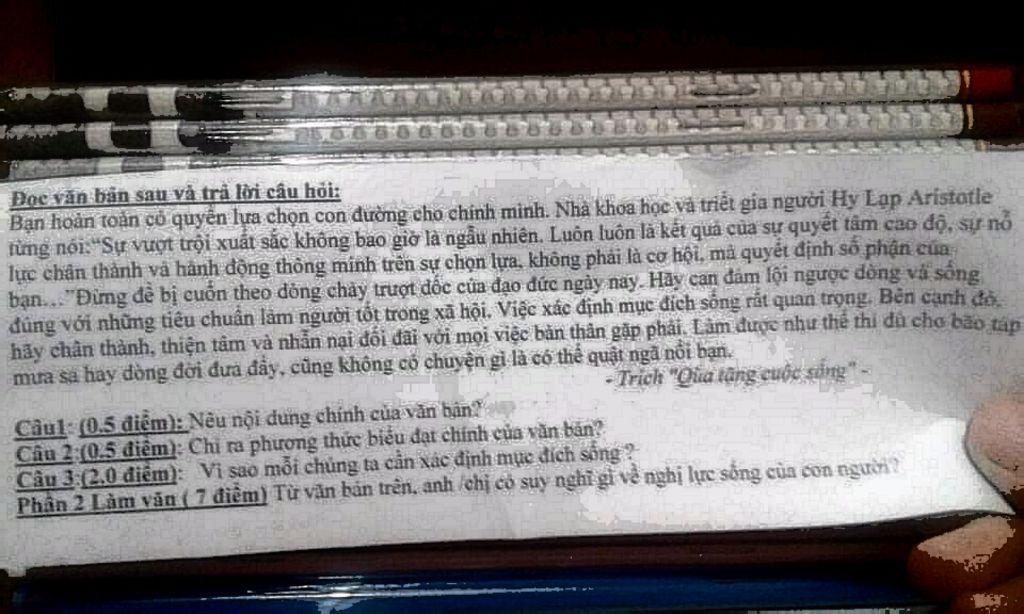 Đọc văn bản sau và trả lời câu hỏi:
Bạn hoàn toàn có quyền lựa chọn con đường cho chính mình. Nhà khoa học và triết gia người Hy Lạp Aristotle
từng nói:“Sự vượt trội xuất sắc không bao giờ là ngẫu nhiên. Luôn luôn là kết quả của sự quyết tâm cao độ, sự nỗ
lực chân thành và hành động thông minh trên sự chọn lựa, không phải là cơ hội, mà quyết định số phận của
bạn…”Đừng để bị cuốn theo dòng chảy trượt dốc của đạo đức ngày nay. Hãy can đảm lội ngược dòng và sống
đúng với những tiêu chuẩn làm người tốt trong xã hội. Việc xác định mục đích sống rất quan trọng. Bên cạnh đó,
hãy chân thành, thiện tâm và nhẫn nại đối đãi với mọi việc bản thân gặp phải. Làm được như thế thì dù cho bão táp
mưa sa hay dòng đời đưa đẩy, cũng không có chuyện gì là có thể quật ngã nổi bạn.
- Trích "Qùa tặng cuộc sống" -
Câu1: (0.5 điểm): Nêu nội dung chính của văn bản?
Câu 2:(0.5 điểm): Chỉ ra phương thức biểu đạt chính của văn bản?
Câu 3:(2.0 điểm): Vì sao mỗi chúng ta cần xác định mục đích sống ?
Phần 2 Làm văn ( 7 điểm) Từ văn bản trên, anh /chị có suy nghĩ gì về nghị lực sống của con người?